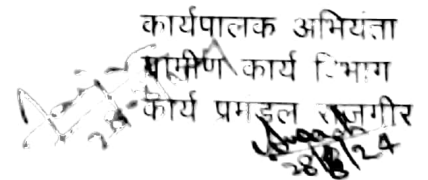 कार्यपालक अभियंता
ग्रामीण कार्य विभाग
कार्य प्रमंडल राजगीर
28/8/24